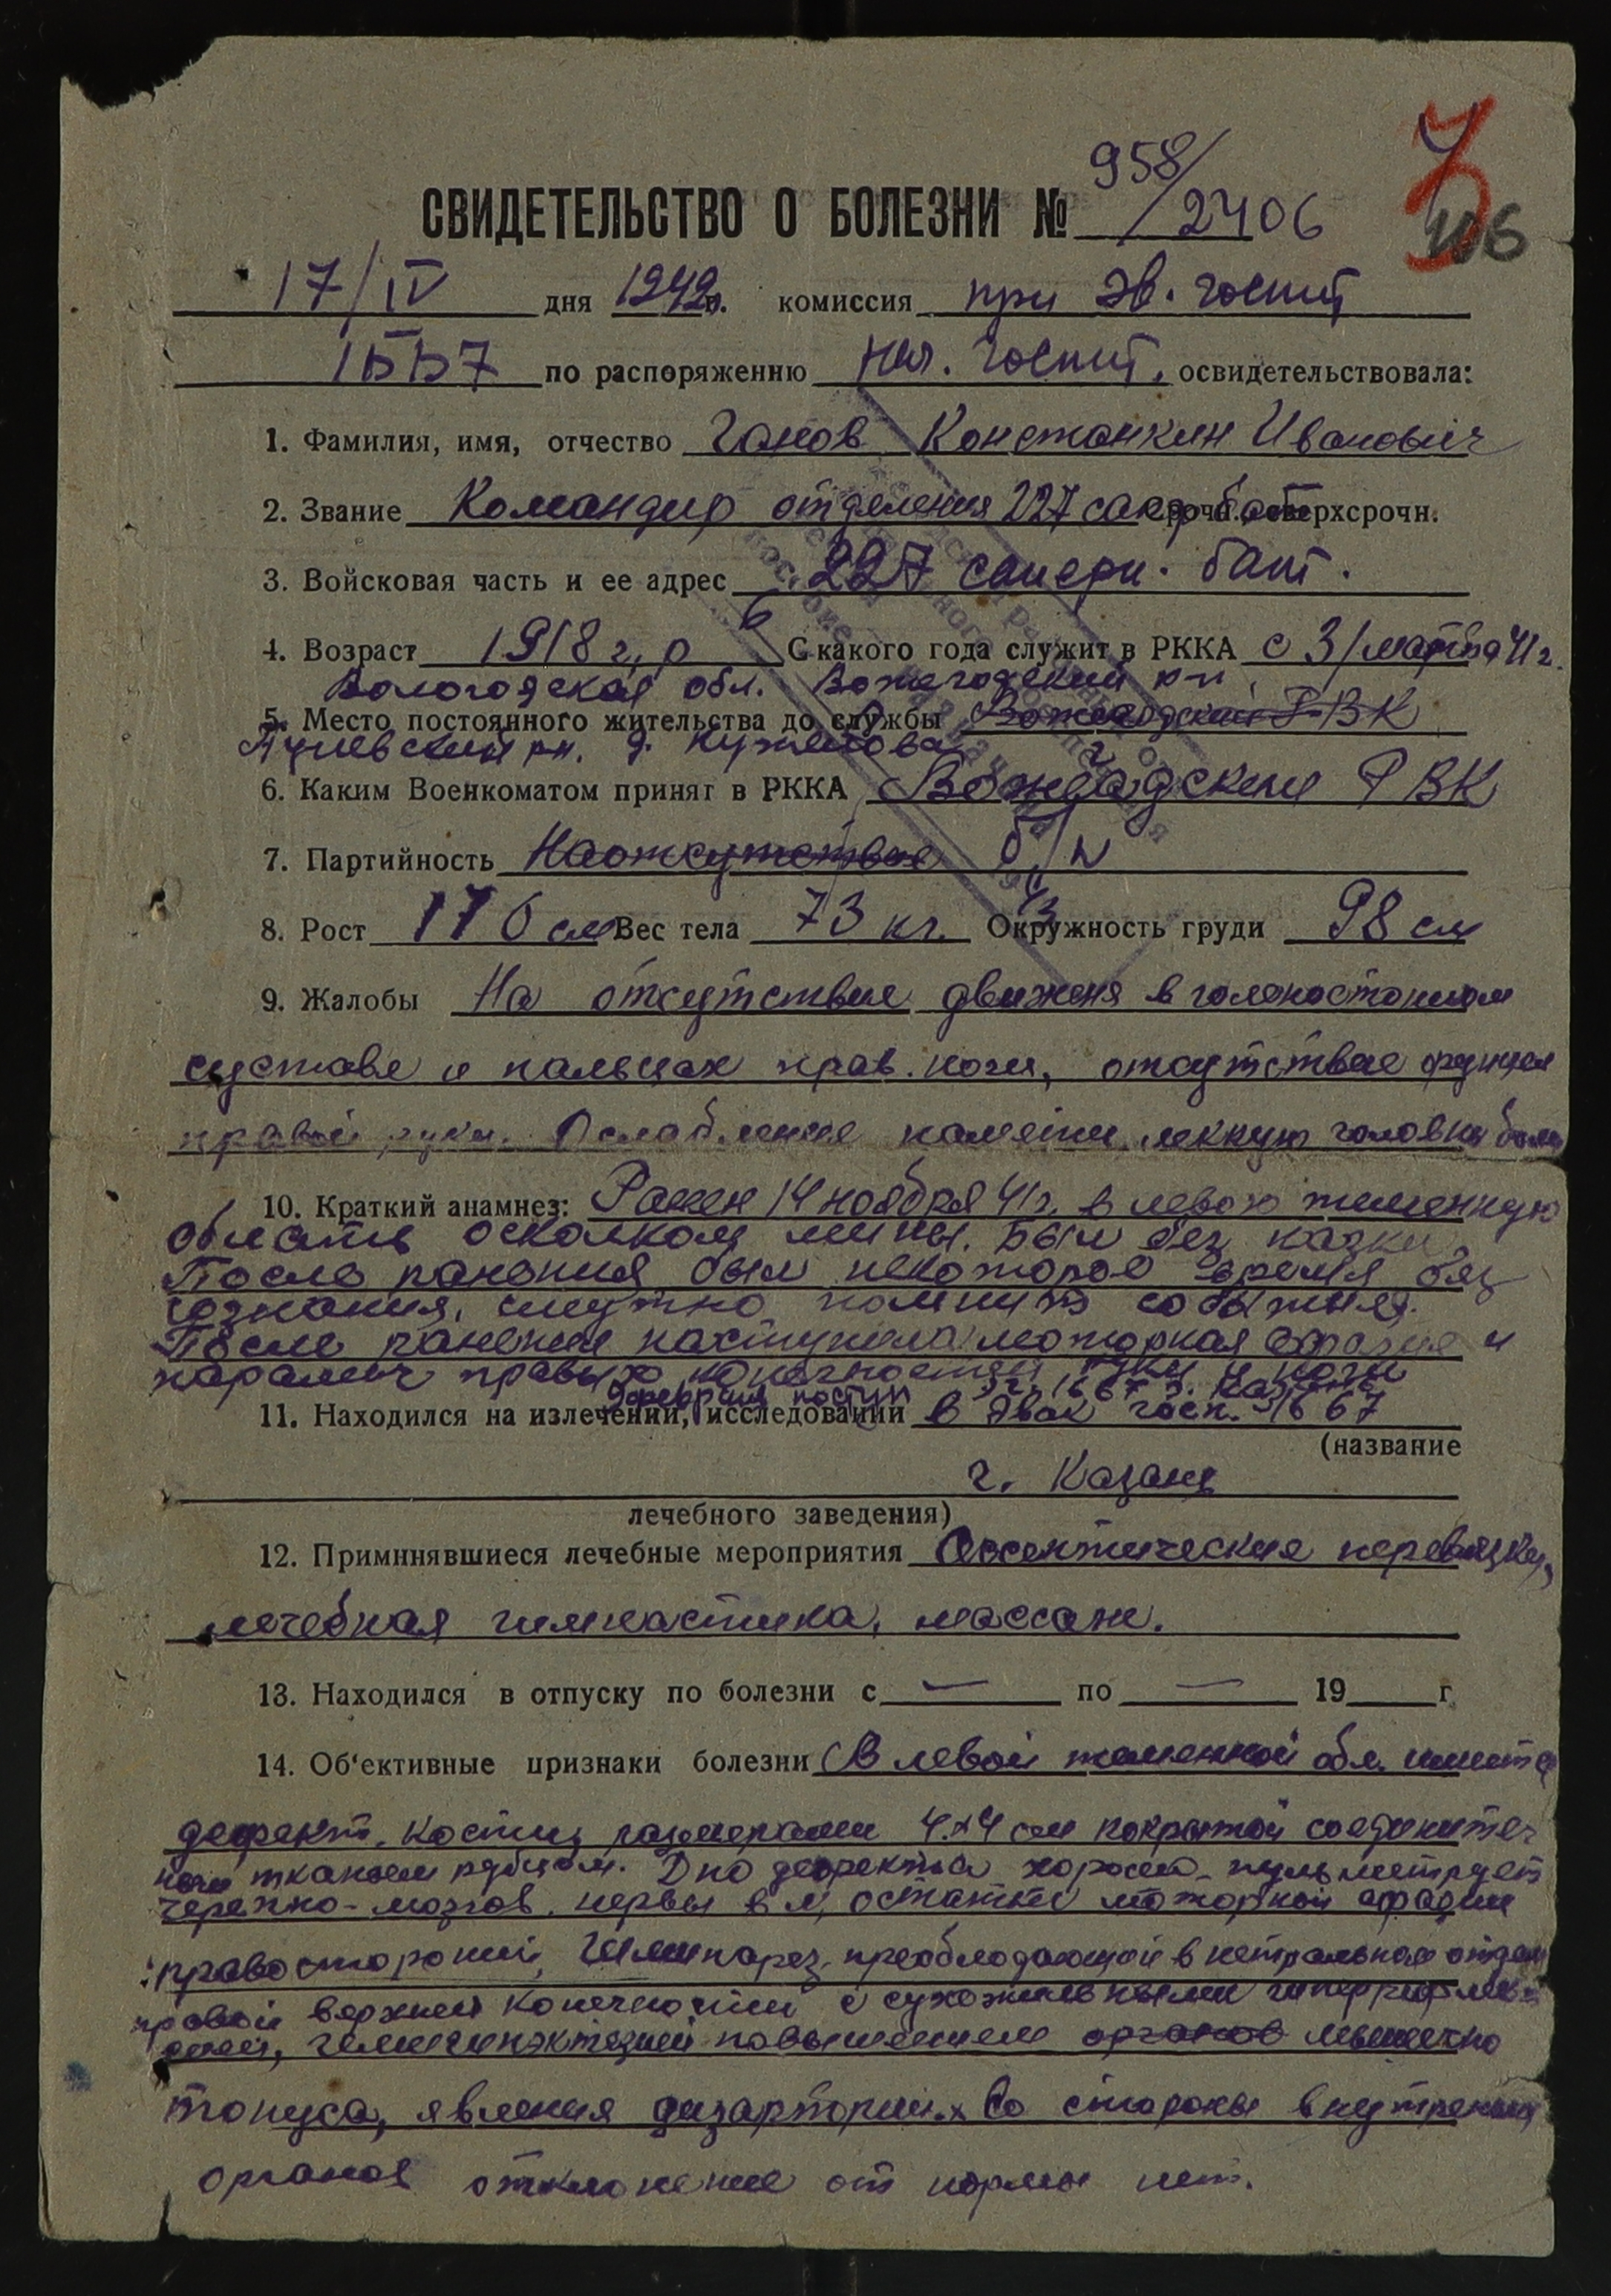 958/
СВИДЕТЕЛЬСТВО О БОЛЕЗНИ № /2406
106
17/IV дня 1942г. комиссия при эв. госпит
по распоряжению нач. госпит. освидетельствовала:
1. Фамилия, имя, отчество Ганов Константин Иванович
2. Звание Командир отделения 227 сапер бат срочн. сверхсрочн.
3. Войсковая часть и ее адрес 227 саперн. бат.
4. Возраст 1918 г. р С какого года служит в РККА с 3/марта 41г.
Вологодская обл. Вожегодский р-н
5. Место постоянного жительства до службы Вожегодский РВК
рн. д.
6. Каким Военкоматом принят в РККА Вожегодским РВК
7. Партийность б/п
8. Рост 176 см Вес тела 73 кг. Окружность груди 98 см
9. Жалобы На отсутствие движеня в голеностопном
суставе и пальцах прав. ноги, отсутствие функции
правой руки. Ослабление памяти, головн боль
10. Краткий анамнез: Ранен 14 ноября 41г. в левою теменную
область осколком мины. Был без каски.
После ранения был некоторое время без
сознания, смутно помнит события.
После ранения наступила моторная афазия и
паралич правых конечностей руки и ноги
9 февраля поступ
11. Находился на излечении, исследовании в Эвак госп. 1667
(название
г. Казань
лечебного заведения)
12. Приминявшиеся лечебные мероприятия Ассептические перевязки,
лечебная гимнастика, массаж.
13. Находился в отпуску по болезни с — по — 19 г
14. Об'ективные признаки болезни В левой теменной обл. имеется
дефект. кости размерами 4х4 см покрытой соединител
ной тканьем рубцом. Дно дефекта хорошо пульметрует
черепно-мозгов. нервы в N, остатки моторной афазии
правосторонний, Гемипарез, преоблодающой в отделе
правой верхней конечности с сухожильными
повышением органов мышечно
тонуса, явления дизартрии. Со стороны внутренних
органов отклонение от нормы нет.